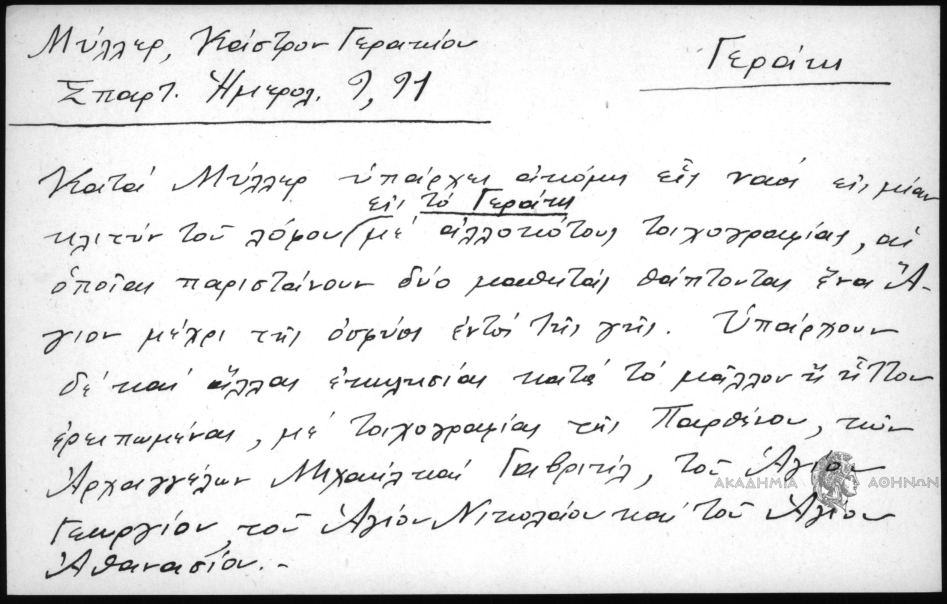 Μύλλερ, Κάστρον Γερακίου
Σπαρτ. Ἡμερολ. 9, 91
Γεράκι
Κατά Μύλλερ ὑπάρχει ἀκόμη εἷς ναός εἰς μίαν
εἰς τό Γεράκι
κλιτύν τοῦ λόφου (μέ ἀλλοκότους τοιχογραφίας, αἱ
ὁποῖαι παριστάνουν δύο μαθητάς θάπτοντας ἕνα Ἅ-
γιον μέχρι τῆς ὀσφύος ἐντός τῆς γῆς. Ὑπάρχουν
δέ καί ἄλλαι ἐκκλησίαι κατά τό μᾶλλον ἤ ἧττον
ἐρειπωμέναι, μέ τοιχογραφίας τῆς Παρθένου, τῶν
Ἀρχαγγέλων Μιχαήλ καί Γαβριήλ, τοῦ Ἁγίου
Γεωργίου, τοῦ Ἁγίου Νικολάου καί τοῦ Ἁγίου
Ἀθανασίου.-
ΑΚΑΔΗΜΙΑ ΑΘΗΝΩΝ